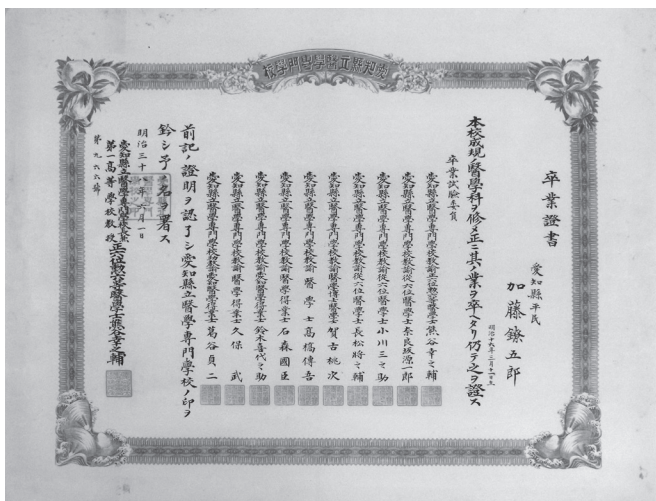 愛知縣立醫學專門學校
卒業證書
愛知縣平民
加藤鐐五郎
本校成規ノ醫學科ヲ修メ正ニ其ノ業ヲ卒ヘタリ仍テ之ヲ證ス
卒業試驗委員
愛知縣立醫學專門學校教諭正六位勲六等醫學士熊谷幸之輔
愛知縣立醫學專門學校教諭從六位醫學士奈良坂源一郎
愛知縣立醫學專門學校教諭從六位醫學士小川三之助
愛知縣立醫學專門學校教諭醫學士賀古桃次
愛知縣立醫學專門學校教諭從六位醫學士長松將之輔
愛知縣立醫學專門學校教諭醫學士高橋傳吾
愛知縣立醫學專門學校教諭醫學得業士石森國臣
愛知縣立醫學專門學校教諭醫學得業士鈴木喜代之助
愛知縣立醫學專門學校教諭醫學得業士久保武
愛知縣立醫學專門學校醫學得業士葛谷貞二
前記ノ證明ヲ認了シ愛知縣立醫學專門學校ノ印ヲ
鈐シ予ノ名ヲ署ス
明治三十八年月一日
愛知縣立醫學專門學校長正六位勲六等醫學士熊谷幸之輔
第一高等學校教授
第九六六號